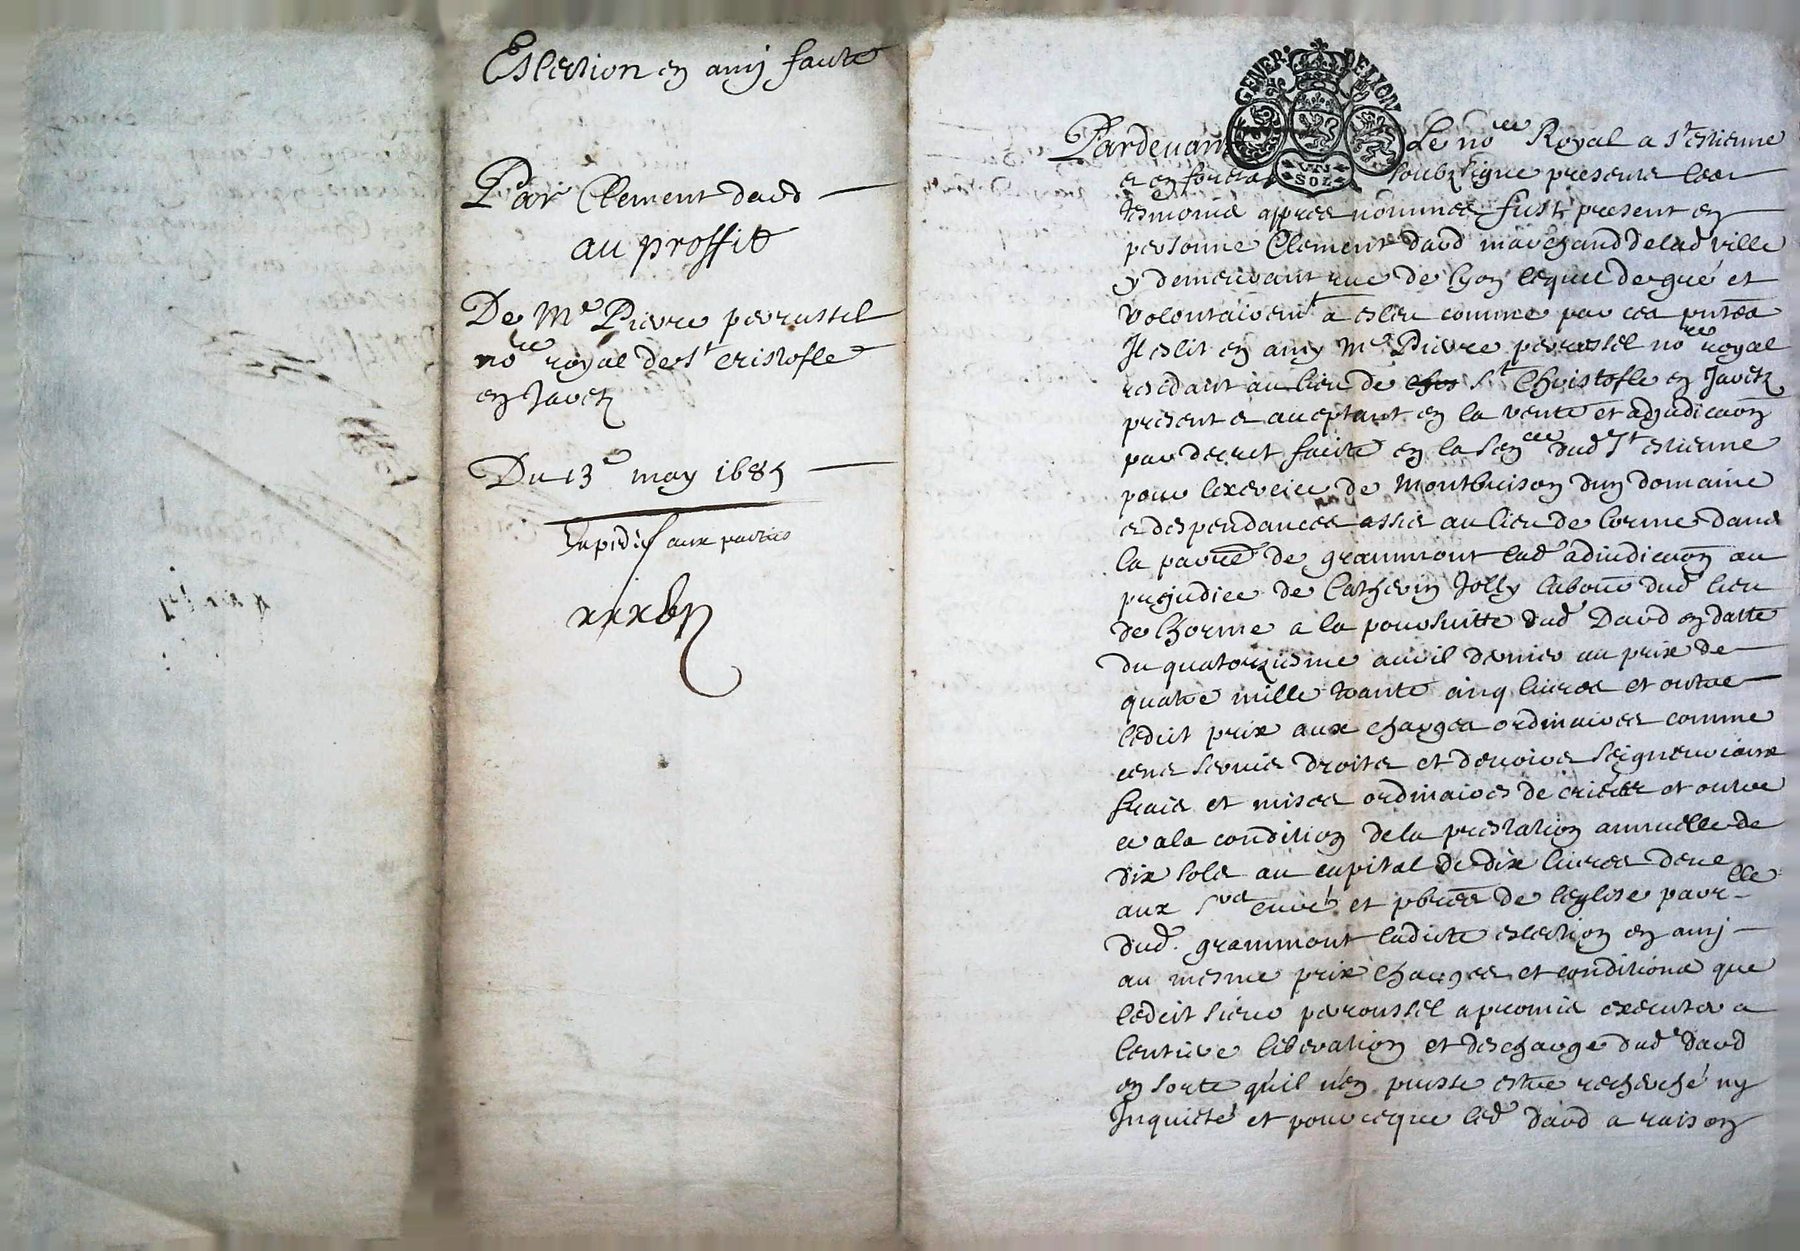 Eslection en amy faicte
Par Clement David
au proffit
De Me Pierre peyrussel
nore royal de St Cristofle
en Javetz
Du 13e may 1685
Expedié aux parties
GENER. DE LION
SOLS
Pardevant Le nore Royal a St estienne
et en forest soubzsigné presents les
tesmoins appres nommes fust present en
personne Clement david marchand de lad ville
y demeurant rue de lyon lequel de gré et
volontairemt a esleu comme par ces pntes
Il eslit en amy Me Pierre peyrussel nore royal
residant au lieu de St Christofle en Javetz
present et acceptant en la vente et adjudicaon
par decret faicte en la sencce dud St estienne
pour lexercice de Montbrison dun domaine
et despendances assis au lieu de lorme dans
la parre de grammont lad adjudicaon au
prejudice de Catherin Jolly labour dud lieu
de lhorme a la poursuitte dud David en datte
du quatorziesme avril dernier au prix de
quatre mille trante cinq livres et outre
ledict prix aux charges ordinaires comme
cens servis droits et devoirs seigneuriaux
frais et mises ordinaires de criées et outre
ce a la condition de la prestation annuelle de
dix sols au capital de dix livres deue
aux srs curé et pbres de leglise parrlle
dud. grammont ladicte eslection en amy
au mesme prix charges et conditions que
ledict sieur peyroussel a promis executer a
lentiere liberation et descharge dud david
en sorte quil nen puisse estre recherché ny
Inquieté et pource que led david a raison